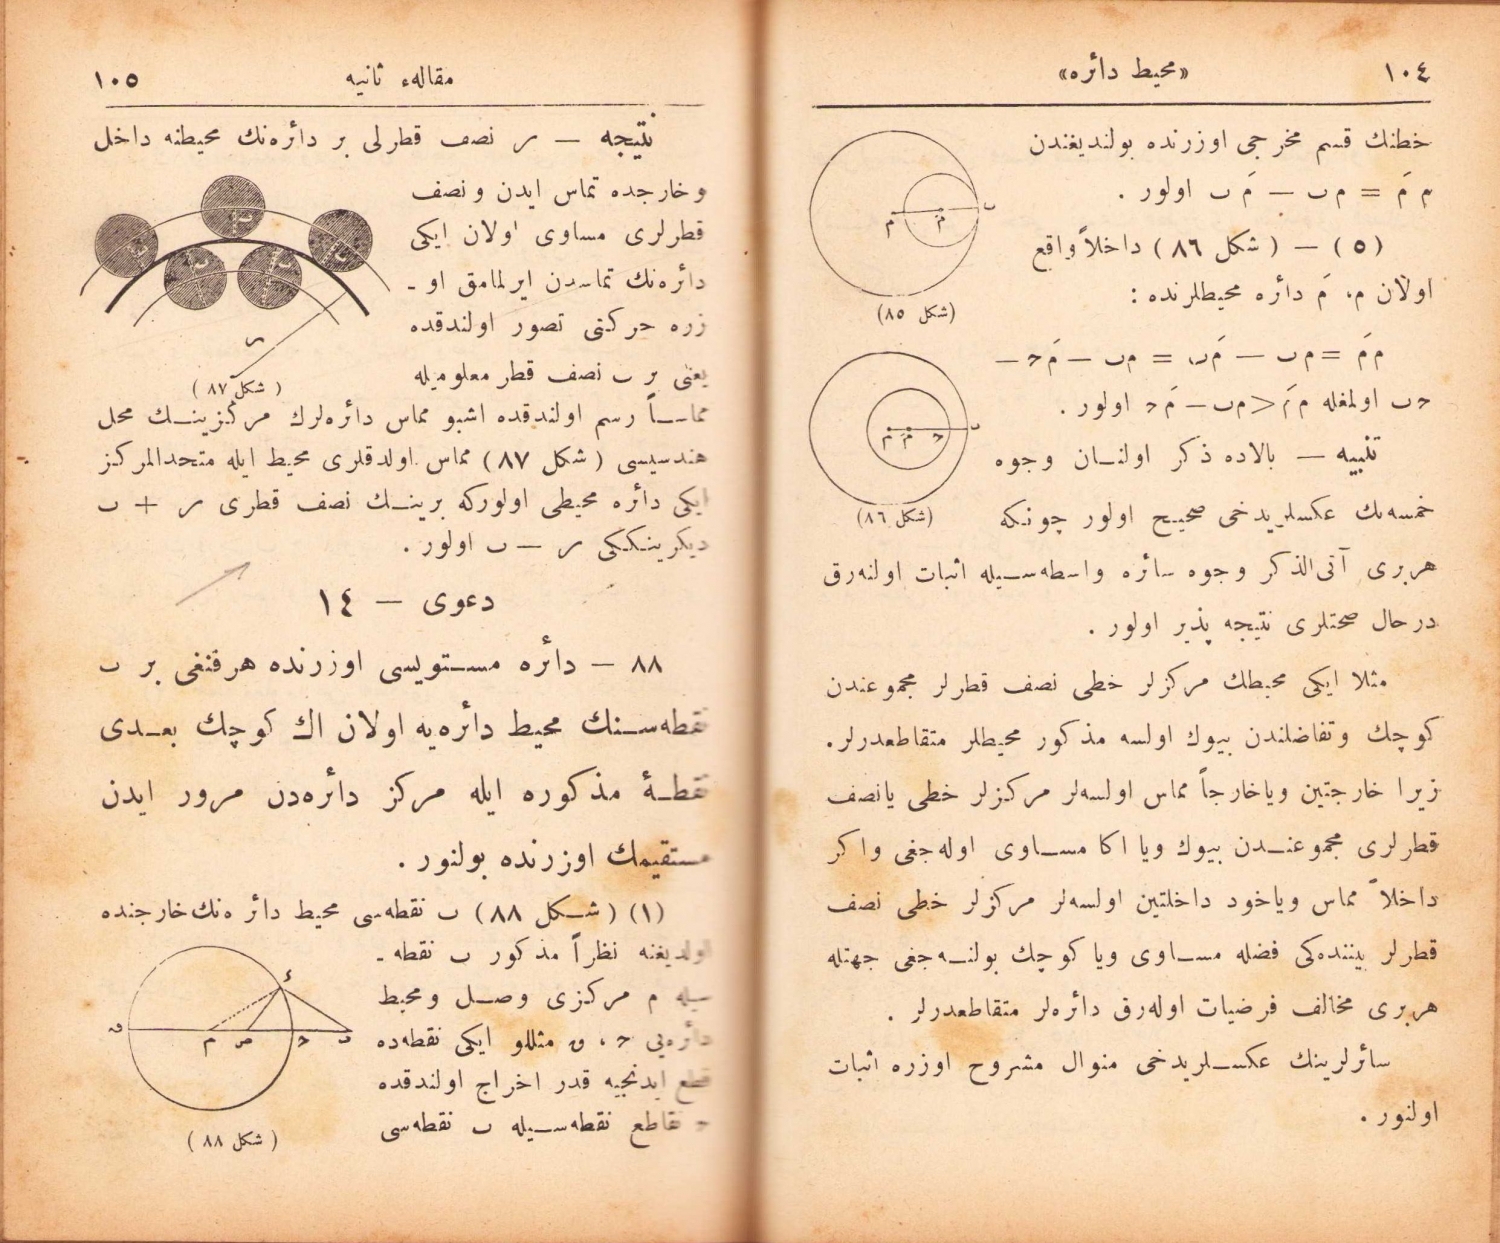 ١٠٤
«محیط دائره»
خطنك قسم مخرجی اوزرنده بولندیغندن
م مَ = م ب — مَ ب اولور .
(٥) — ( شکل ٨٦ ) داخلاً واقع
اولان م، مَ دائره محیطلرنده :
م مَ = م ب — مَ ب، = م ب — مَ ح —
ح ب اولمغله م مَ < م ب — مَ ح اولور .
تنبیه — بالاده ذکر اولنـان وجوه
خمسه‌نك عکسلریدخی صحیح اولور چونکه
هربری آتی‌الذکر وجوه سائره واسطه‌سـیله اثبات اولنه‌رق
درحال صحتلری نتیجه پذیر اولور .
مثلا ایکی محیطك مرکزلر خطی نصف قطرلر مجموعندن
کوچك وتفاضلندن بیوك اولسه مذکور محیطلر متقاطعدرلر.
زیرا خارجتین ویاخارجاً مماس اولسه‌لر مرکزلر خطی یانصف
قطرلری مجموعنـدن بیوك ویا اکا مسـاوی اوله‌جغی واکر
داخلاً مماس ویاخود داخلتین اولسه‌لر مرکزلر خطی نصف
قطرلر بیننده‌کی فضله مسـاوی ویا کوچك بولنـه‌جغی جهتله
هربری مخالف فرضیات اوله‌رق دائره‌لر متقاطعدرلر .
سائرلرینك عکسـلریدخی منوال مشروح اوزره اثبات
اولنور .
ب
م
مَ
(شکل ٨٥)
ب
ح
مَ
م
(شکل ٨٦)
مقالهء ثانیه
١٠٥
نتیجه — ر نصف قطرلی بر دائره‌نك محیطنه داخل
وخارجده تماس ایدن ونصف
قطرلری مساوی اولان ایکی
دائره‌نك تماسدن ایرلمامق او ـ
زره حرکتی تصور اولندقده
یعنی بر ب نصف قطر معلومیله
مماسـاً رسم اولندقده اشبو مماس دائره‌لرك مرکزینـك محل
هندسیسی ( شکل ٨٧ ) مماس اولدقلری محیط ایله متحدالمرکز
ایکی دائره محیطی اولورکه برینـك نصف قطری ر + ب
دیکرینککی ر — ب اولور .
ر
( شکل ٨٧ )
دعوی — ١٤
٨٨ — دائره مسـتویسی اوزرنده هرقنغی بر ب
نقطه‌سـنك محیط دائره‌یه اولان اك کوچك بعـدی
نقطـهٔ مذکوره ایله مرکز دائره‌دن مرور ایدن
مستقیمك اوزرنده بولنور .
(١) ( شـکل ٨٨ ) ب نقطه‌سی محیط دائره‌نك خارجنده
اولدیغنه نظراً مذکور ب نقطه ـ
سیله م مرکزی وصـل ومحیط
دائره‌یی ح ، ن مثللو ایکی نقطه‌ده
قطع ایدنجیه قدر اخراج اولندقده
ح تقاطع نقطه‌سـیله ب نقطه‌سی
م
ح
( شکل ٨٨ )